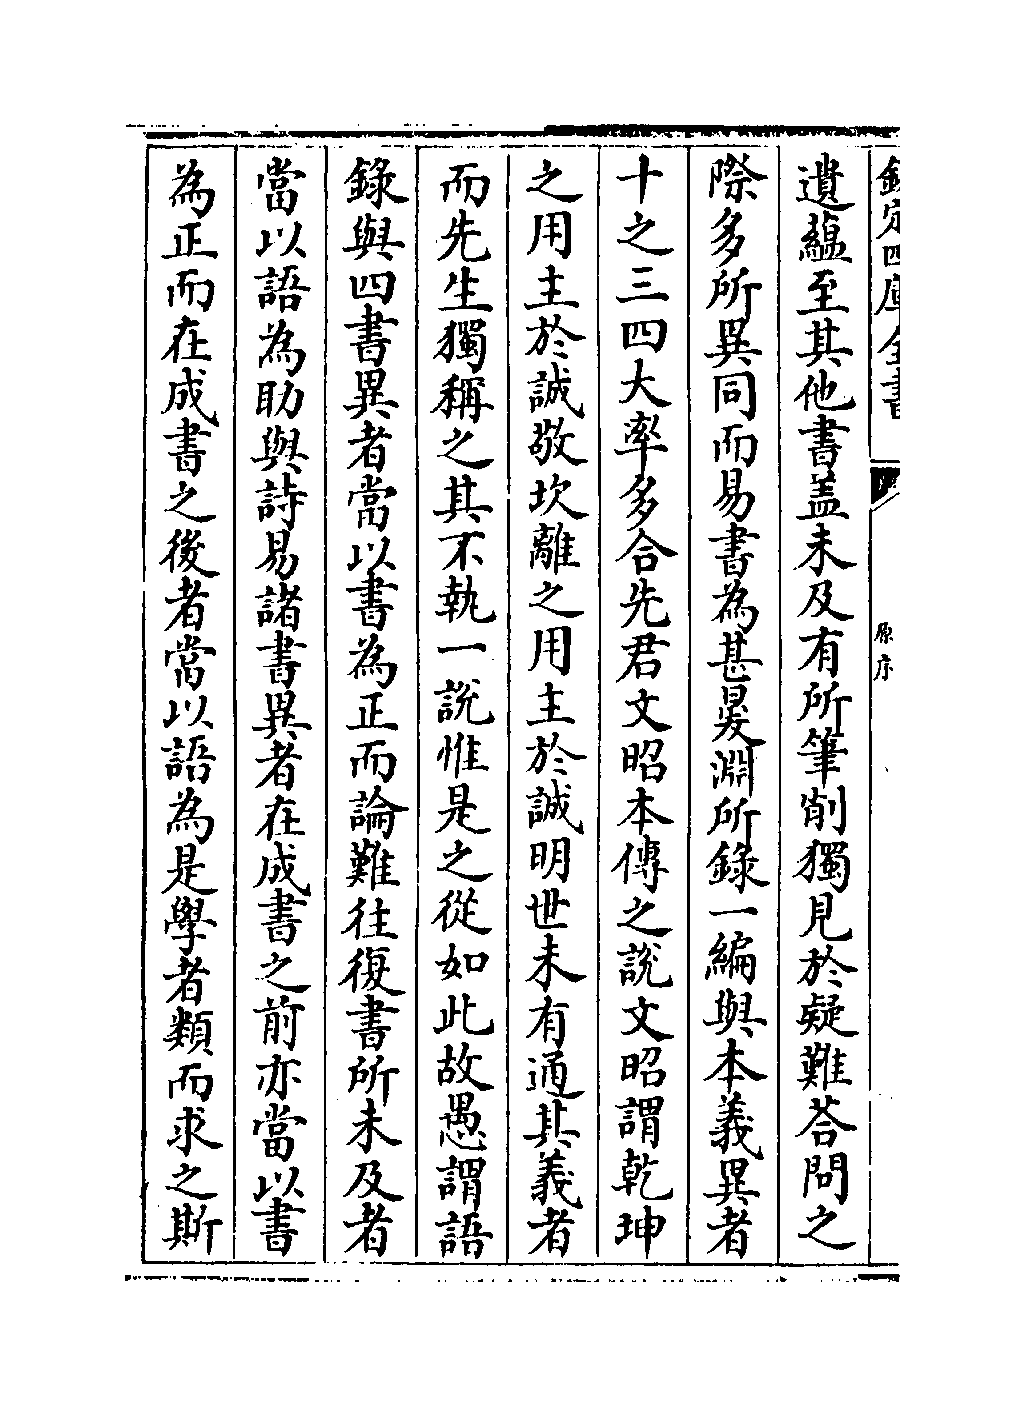 欽定四庫全書
原序
遺蘊至其他書盖未及有所筆削獨見於疑難荅問之
際多所異同而易書為甚㬊淵所錄一編與本義異者
十之三四大率多合先君文昭本傳之說文昭謂乾坤
之用主於誠敬坎離之用主於誠明世未有通其義者
而先生獨稱之其不執一說惟是之從如此故愚謂語
錄與四書異者當以書為正而論難往復書所未及者
當以語為助與詩易諸書異者在成書之前亦當以書
為正而在成書之後者當以語為是學者類而求之斯